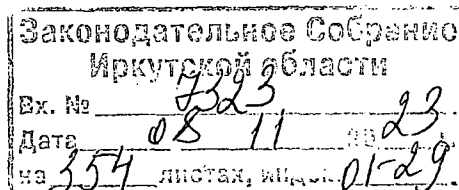 Законодательное Собрание
Иркутской области
Вх. № 7323
Дата 08 11 20 23 г.
на 354 листах, индекс 01-29